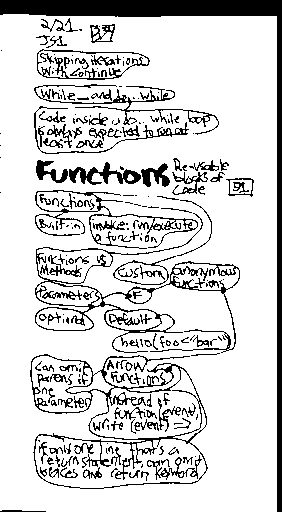 2/21.
JS1
Skipping iterations
with continue
While and do.. while
Code inside a do.. while loop
is always expected to run at
least once
Functions Re-usable
blocks of
Code
Functions
Built-in
invoke: run/execute
a function
Functions vs
Methods
Custom
anonymous
functions
Parameters
F
optional
Default
hello(foo="bar")
Can omit
parens if
one
parameter
Arrow
Functions
instead of
function(event),
write (event) =>
if only one line that's a
return statement, can omit
braces and return keyword